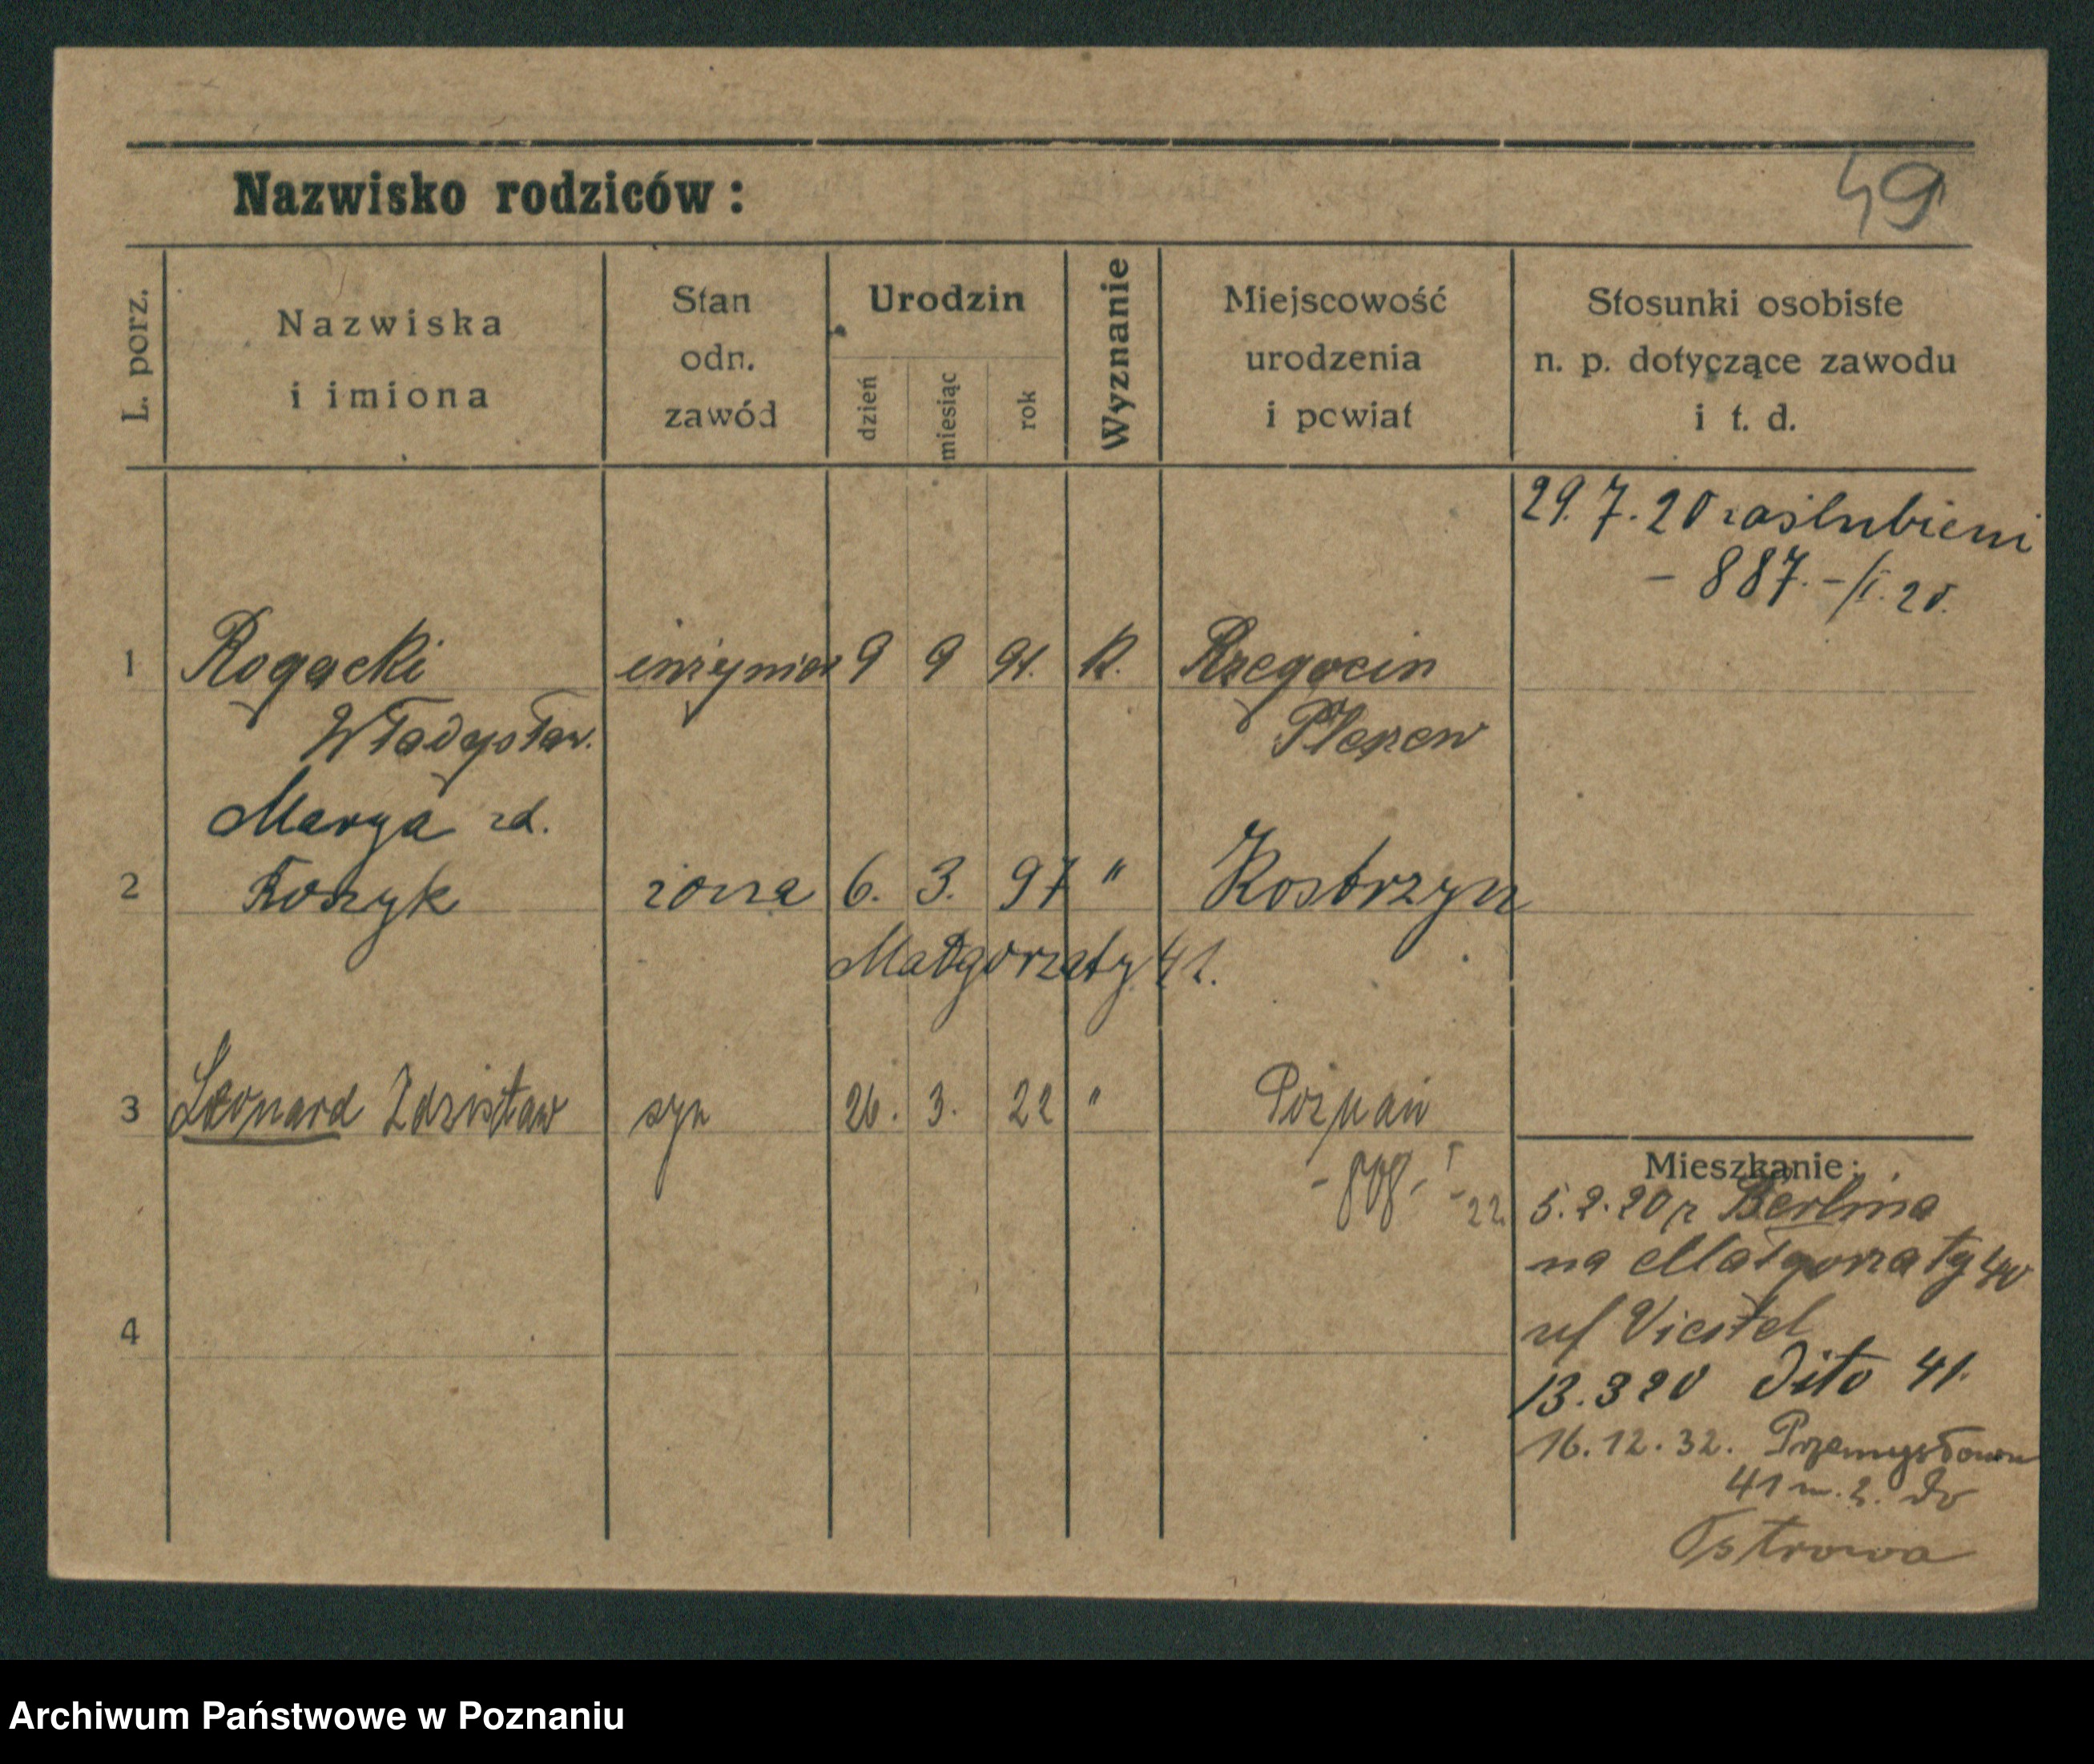 Nazwisko rodziców:
49
L. porz.
Nazwiska
i imiona
Stan
odn.
zawód
Urodzin
dzień
miesiąc
rok
Wyznanie
Miejscowość
urodzenia
i powiat
Stosunki osobiste
n. p. dotyczące zawodu
i t. d.
29. 7. 20 zaślubieni
- 887. -/I. 20.
1 Rogacki inżynier 9 9 91. K. Rzegocin
Władysław. Pleszew
Marya zd.
2 Koszyk żona 6. 3. 97 " Kostrzyn
Małgorzaty 41.
3 Leonard Zdzisław syn 26. 3. 22 " Poznań
- 808. - I 22
Mieszkanie:
5. 2. 20 z Berlina
na Małgorzaty 40
u/ Viestel
13. 3 20 Dito 41.
4
16. 12. 32. Przemysłowa
41 m. 2. do
Ostrowa
Archiwum Państwowe w Poznaniu